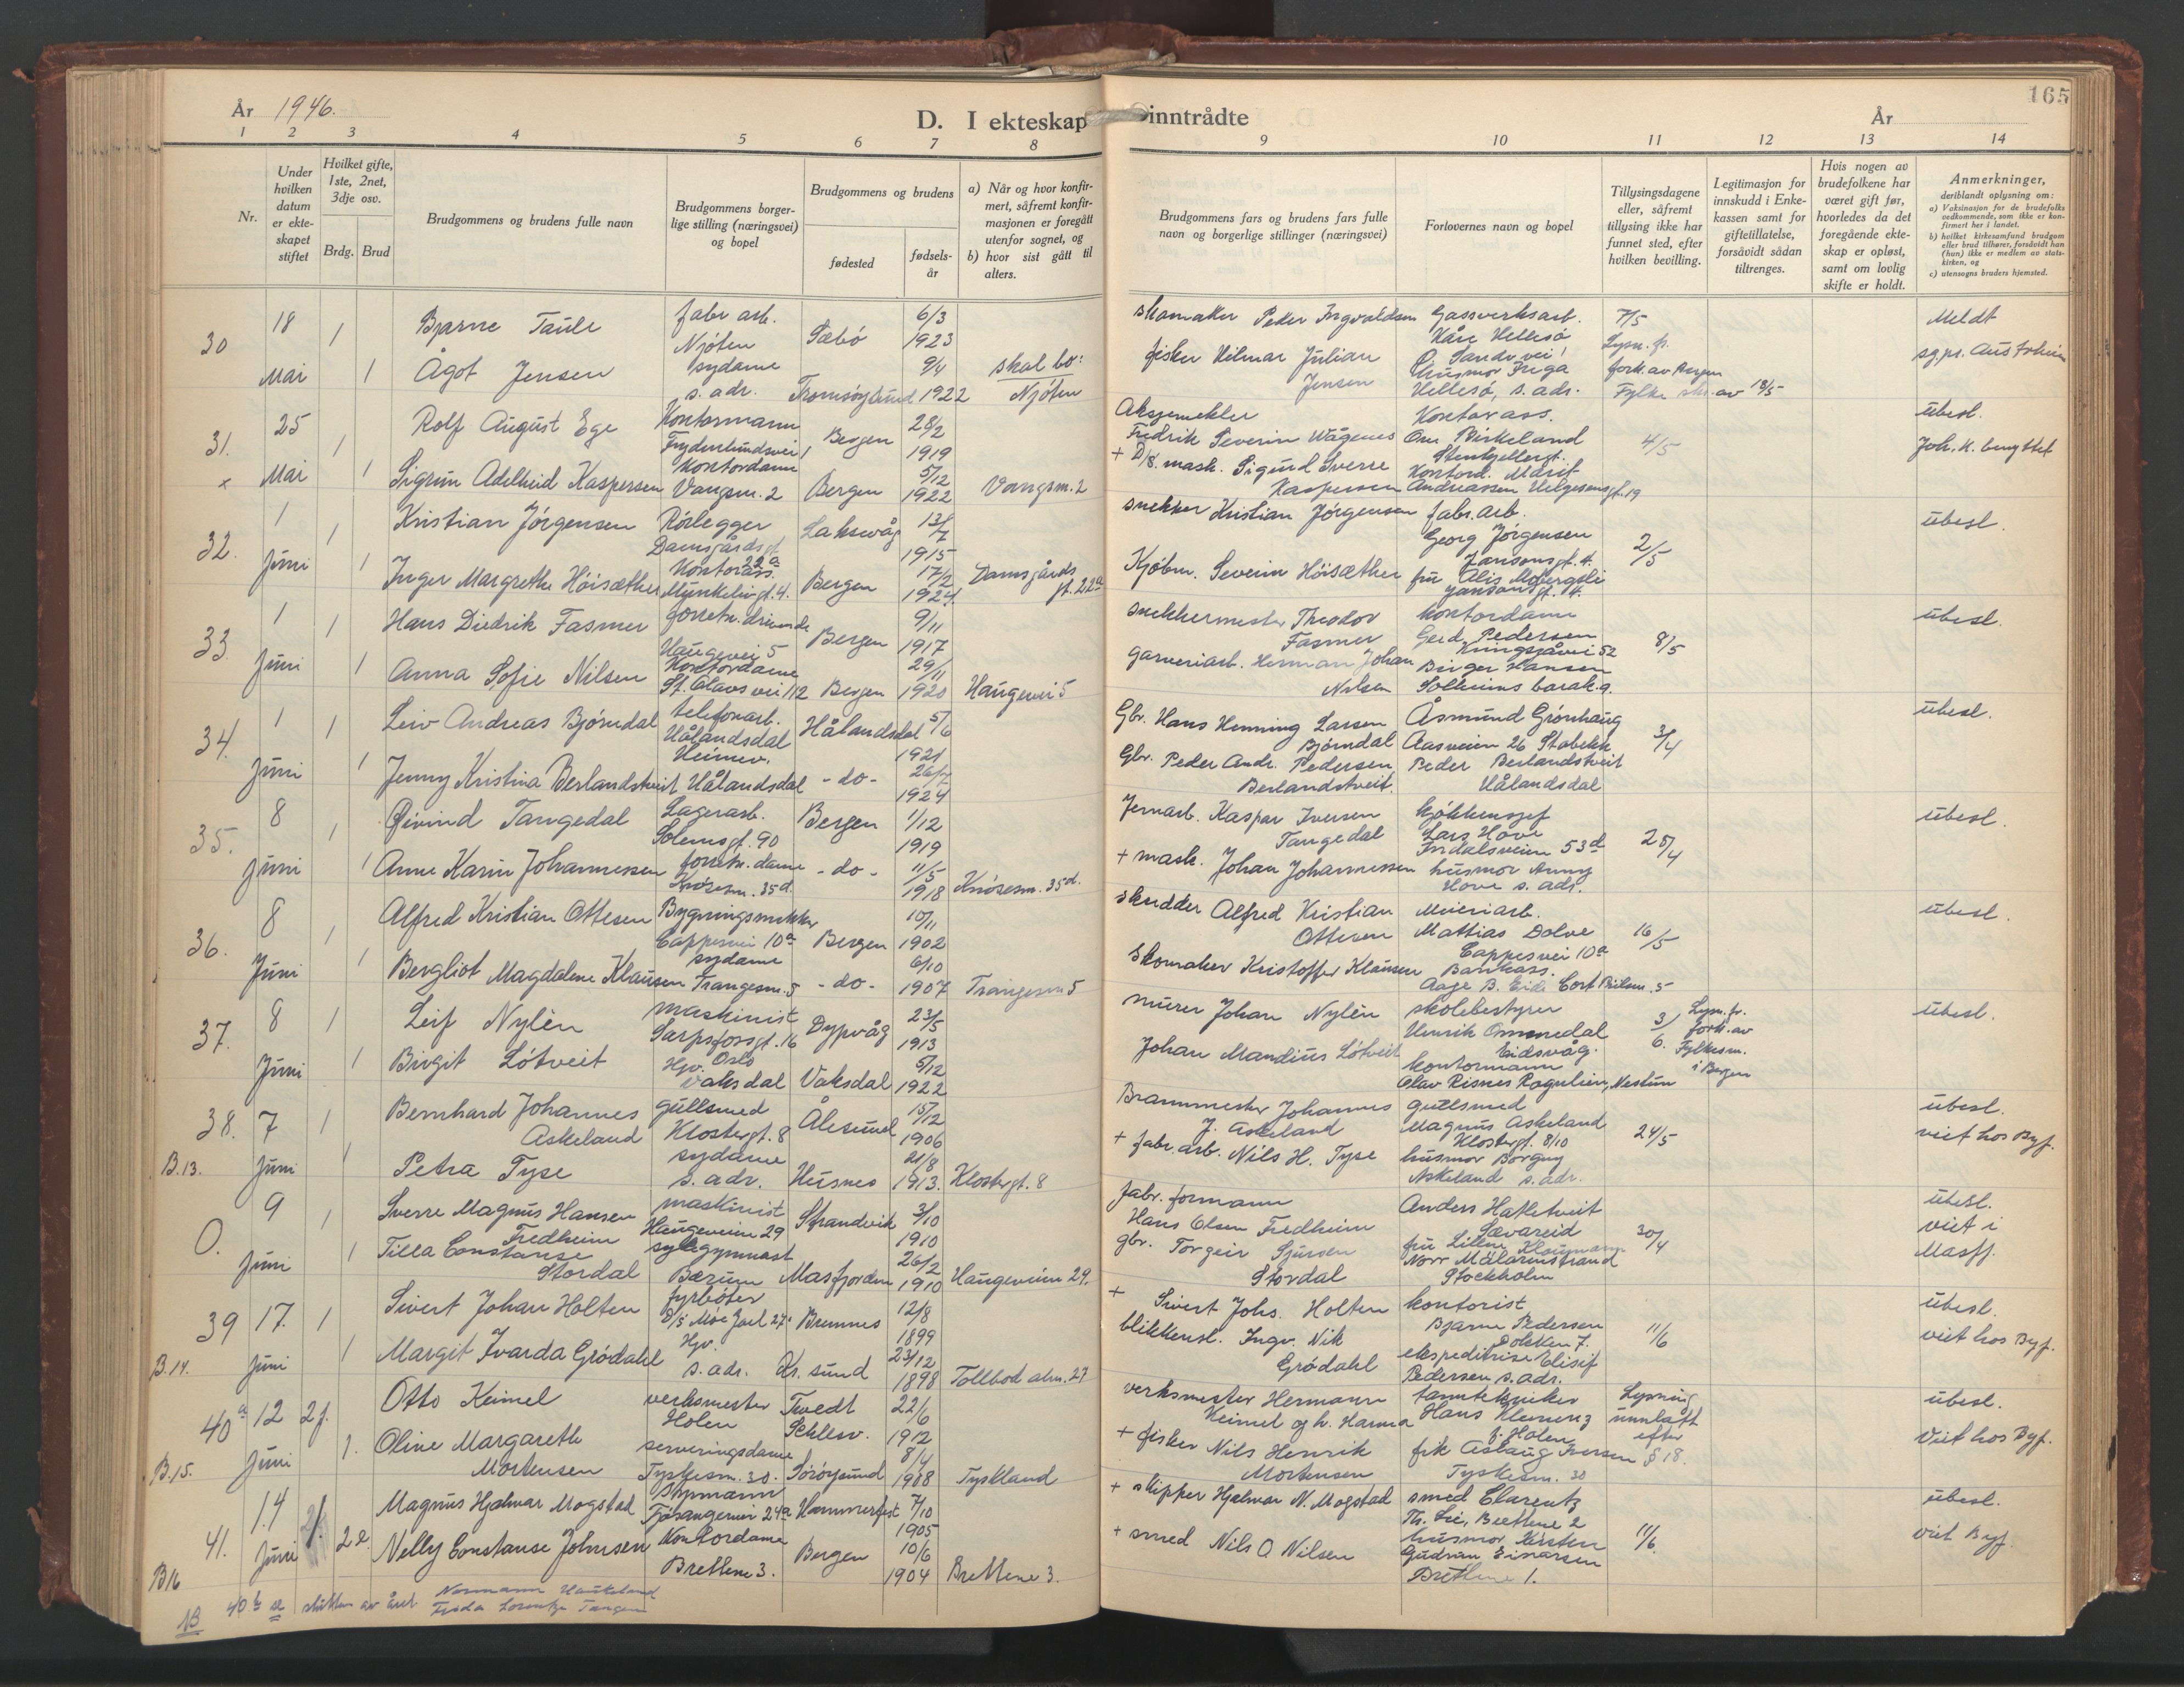 165
År 1946.
D. I ekteskap inntrådte
År
1 2 3 4 5 6 7 8 9 10 11 12 13 14
Nr.
Under hvilken datum er ekteskapet stiftet
Hvilket gifte, 1ste, 2net, 3dje osv.
Brdg. Brud
Brudgommens og brudens fulle navn
Brudgommens borgerlige stilling (næringsvei) og bopel
Brudgommens og brudens
fødested
fødselsår
a) Når og hvor konfirmert, såfremt konfirmasjonen er foregått utenfor sognet, og
b) hvor sist gått til alters.
Brudgommens fars og brudens fars fulle navn og borgerlige stillinger (næringsvei)
Forlovernes navn og bopel
Tillysingsdagene eller, såfremt tillysing ikke har funnet sted, efter hvilken bevilling.
Legitimasjon for innskudd i Enkekassen samt for giftetillatelse, forsåvidt sådan tiltrenges.
Hvis nogen av brudefolkene har været gift før, hvorledes da det foregående ekteskap er opløst, samt om lovlig skifte er holdt.
Anmerkninger,
deriblandt oplysning om:
a) Vaksinasjon for de brudefolks vedkommende, som ikke er konfirmert her i landet.
b) hvilket kirkesamfund brudgom eller brud tilhører, forsåvidt han (hun) ikke er medlem av statskirken, og
c) utensogns bruders hjemsted.
30 18 Mai 1 Bjarne Taule fabr arb. Njøten Sæbø 6/3 1923 skomaker Peter Ingvaldsen Gassverksarb. Kåre Hellesö 7/5 Meldt
1 Ågot Jensen sydame s. adr. Tromsøysund 9/4 1922 skal bo: Njøten fisker Hilmar Julian Jensen Ø. Sandv.vei husmor Inga Hellesö, s. adr. Lysn. fr. fork. av Bergen Fylke skr. av 18/5 sgpr. Austrheim
31. 25 Mai 1 Rolf August Ege Kontormann Frydenlundsvei 1 Bergen 28/2 1919 Aksjemekler Fredrik Severin Wågenes Kontorass. Ove Birkeland Stenkjellergt. 4/5 übesl. Joh. K. benyttet
x 1 Sigrun Adelheid Kaspersen Kontordame Vangsm. 2 Bergen 5/12 1922 Vangsm. 2 + D/S. mask. Sigurd Sverre Kaspersen Kontord. Marit Andreassen Helgesensgt. 19
32. 1 Juni 1 Kristian Jörgensen Rörlegger Damsgårdsgt. 22a Laksevåg 13/7 1915 snekker Kristian Jörgensen fabr. arb. Georg Jörgensen Jansonsgt. 4. 2/5 übesl.
1 Inger Margrethe Höisæther Kontorass. Munkelivgt. 4. Bergen 17/2 1924. Damsgårdsgt. 22a Kjöbm. Severin Höisæther frü Alis Mobergsli Jansonsgt. 4.
33. 1 Juni 1 Hans Diedrik Fasmer forretn. drivende Haugevei 5 Bergen 9/11 1917 snekkermester Theodor Fasmer kontordame Gerd Pedersen Kringsjåvei 52 8/5 übesl.
1 Anna Sofie Nilsen Kontordame St. Olavs vei 112 Bergen 29/11 1920 Haugevei 5 garveriarb. Herman Johan Nilsen Birger Hansen Solheims barak. 9.
34. 1 Juni 1 Leiv Andreas Bjørndal telefonarb. Hålandsdal Heimev. Hålandsdal 5/6 1921 Gbr. Hans Henning Larsen Bjørndal Åsmund Grönhaug Aasveien 26 Stabekk 3/4 übesl.
1 Jenny Kristina Berlandstveit Hålandsdal - do - 26/7 1924 Gbr. Peder Andr. Pedersen Berlandstveit. Peder Berlandstveit Hålandsdal
35. 8 Juni 1 Øivind Tangedal Lagerarb. Solemsgt. 90 Bergen 1/12 1919 Jernarb. Kaspar Iversen Tangedal kjökkensjef Lars Hove Iñdalsveien 53d 25/4 übesl.
1 Anne Karin Johannessen forretn. dame Knösesm. 35d - do - 11/5 1918 Knösesm. 35d. + mask. Johan Johannessen husmor Anny Hove s. adr.
36. 8 Juni 1 Alfred Kristian Ottesen Bygningssnekker Cappesvei 10a Bergen 10/11 1902 skredder Alfred Kristian Ottesen Meieriarb. Mattias Dolve Cappesvei 10a 16/5 übesl.
1 Bergliot Magdalene Klausen sydame Trangesm. 5 - do - 6/10 1907 Trangesm 5 skomaker Kristoffer Klausen Bankass. Aage B. Eide Cort Pilsm. 5
37. 8 Juni 1 Leif Nylèn maskinist Sarpsfossgt. 16 Oslo Dypvåg 23/5 1913 murer Johan Nylèn skolebestyrer Henrik Ommedal Eidsvåg. 3/6. Lysn. fr. fork. av Fylkesm. i Bergen übesl.
1 Birgit Lötveit Hjv. Vaksdal Vaksdal 5/12 1922 Johan Mandius Lötveit kontormann Olav Risnes Rogulien, Nestun
38. 7 Juni 1 Bernhard Johannes Askeland gullsmed Klostergt. 8 Ålesund 15/12 1906 Brannmester Johannes J. Askeland gullsmed Magnus Askeland Klostergt. 8/10 24/5 übesl. viet hos Byf.
B. 13. 1 Petra Tyse sydame s. adr. Husnes 21/8 1913. Klostergt. 8 + fabr. arb. Nils H. Tyse husmor Borgny Askeland s. adr.
O. 9 Juni 1 Sverre Magnus Hansen Fredheim maskinist Haugeveien 29 Strandvik 3/10 1910 fabr. formann Hans Olsen Fredheim Anders Hatletveit Sævareid 30/4 übesl. viet i Masfj.
1 Tilla Constanse Stordal sykegymnast Bærum Masfjorden 26/2 1910 Haugeveien 29. gbr. Torgeir Sjursen Stordal frü Lillne Norr Mälarnstrand Stockholm
39 17. Juni 1 Sivert Johan Holten fyrböter D/S Möre Jarl Bremnes 12/8 1899 + Sivert Johs. Holten kontorist Bjarne Pedersen Dokken 7. 11/6 übesl. viet hos Byf.
B. 14. 1 Margit Ivarda Grödahl Hjv. s. adr. Kr. sund 23/12 1898 Tollbod alm. 27 blikkensl. Ingv. Nik Grödahl ekspeditrise Elisif Pedersen s. adr.
40a 12 Juni 2 f. Otto Keimel verksmester Holen Tvedt Schlesv. 22/6 1912 verksmester Hermann Keimel og h. Hanna tanntekniker Hans Klemenz f. Holen Lysning unnlatt efter § 18. übesl. Viet hos Byf.
B. 15. 1. Oline Margareth Mortensen serveringsdame Tyskesm. 30. Söröysund 8/4 1908 Tyskland + fisker Nils Henrik Mortensen frk Aslaug Iversen Tyskesm. 30
41. 14 Juni Magnus Hjalmar Mogstad Styrmann Fjösangervei 24a Hammerfest 7/10 1905 + skipper Hjalmar N. Mogstad smed Clarentz Th. Lie, Brettene 2 11/6. übesl. viet Byf.
B16 2 e. Nelly Constanse Johnsen Kontordame Brettene 3. Bergen 10/6 1904 Brettene 3. + smed Nils O. Nilsen husmor Kirsten Gudrun Einarsen Brettene 1.
NB 40 b se slutten av året Normann Haukeland Frida Lorentze Tangen